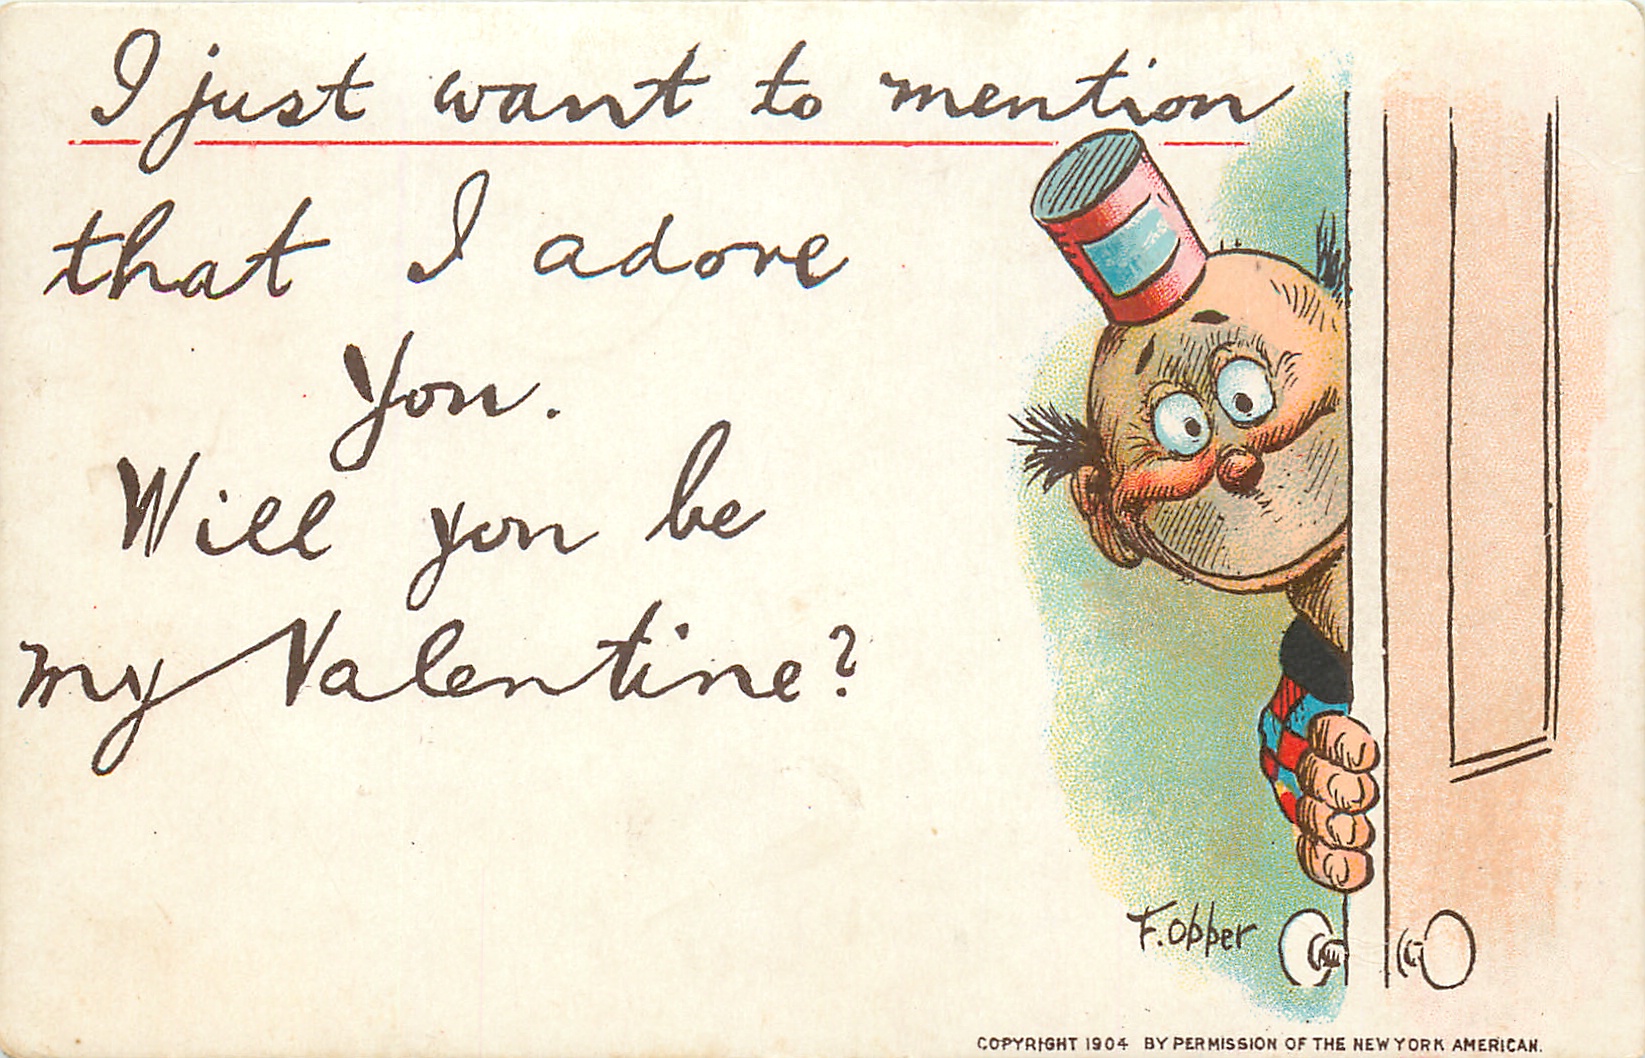 I just want to mention
that I adore
You.
Will you be
my Valentine?
F. Opper
COPYRIGHT 1904 BY PERMISSION OF THE NEW YORK AMERICAN.